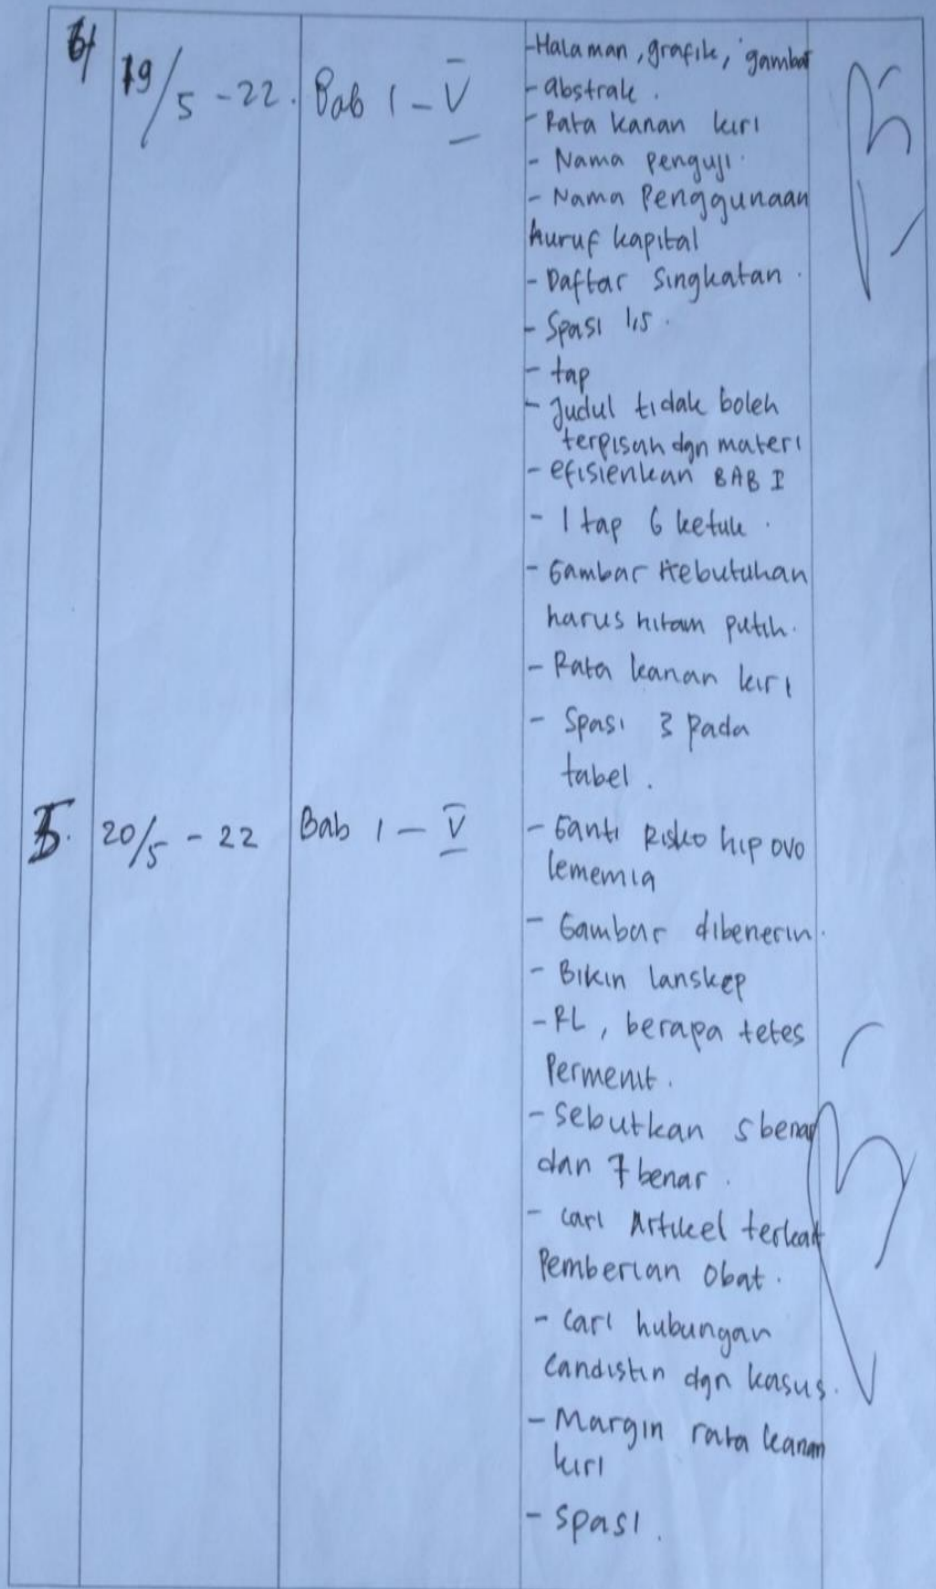 6/ 19/5 - 22. Bab I - V
- Halaman, grafik, gambar
- abstrak.
- Rata kanan kiri
- Nama penguji.
- Nama Penggunaan
huruf kapital
- Daftar Singkatan.
- Spasi 1,5.
- tap
- Judul tidak boleh
terpisah dgn materi
- efisienkan BAB I
- 1 tap 6 ketuk.
- Gambar kebutuhan
harus hitam putih.
- Rata kanan kiri
- Spasi 3 Pada
tabel.
5. 20/5 - 22 Bab I - V
- Ganti Risko hipovo
lememia
- Gambar dibenerin.
- Bikin lanskep
- RL, berapa tetes
Permenit.
- Sebutkan 5 benar
dan 7 benar.
- Cari Artikel terkait
Pemberian Obat.
- Cari hubungan
Candistin dgn kasus.
- Margin rata kanan
kiri
- Spasi.